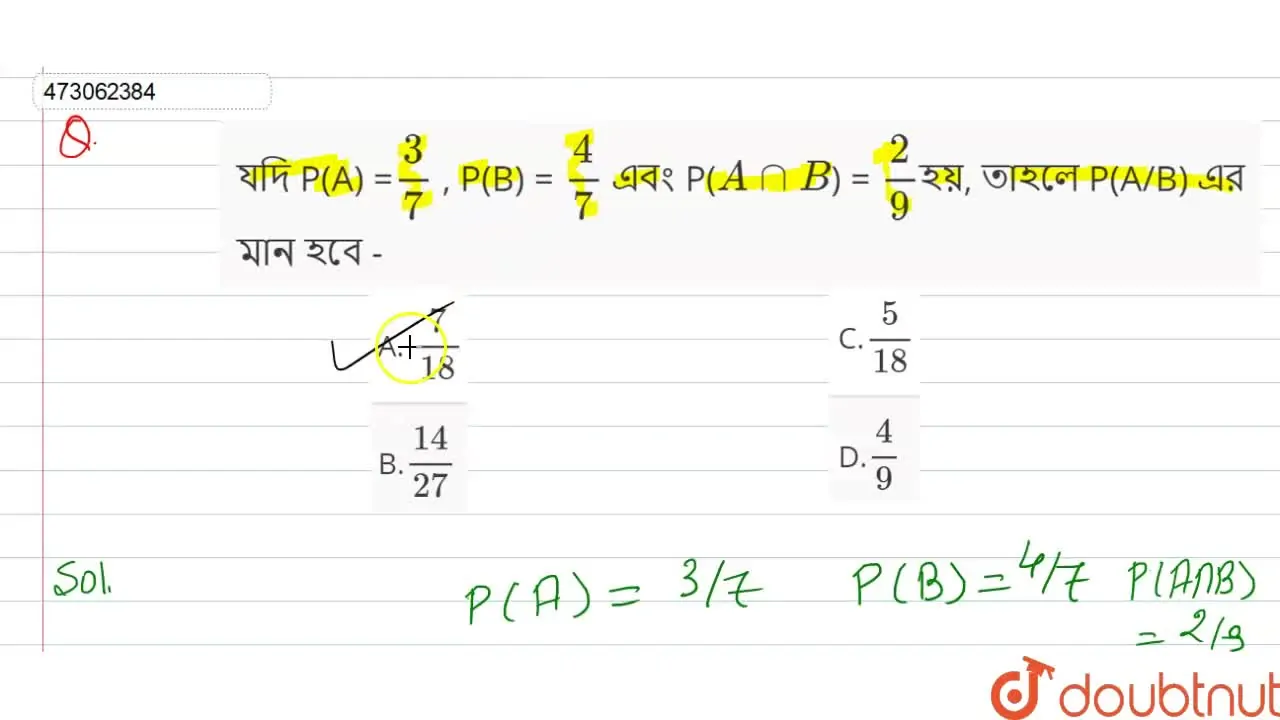 473062384
Q.
যদি P(A) = 3/7 , P(B) = 4/7 এবং P(A ∩ B) = 2/9 হয়, তাহলে P(A/B) এর
মান হবে -
A. 7/18
C. 5/18
B. 14/27
D. 4/9
Sol.
P(A) = 3/7 P(B) = 4/7 P(A∩B)
= 2/9
doubtnut